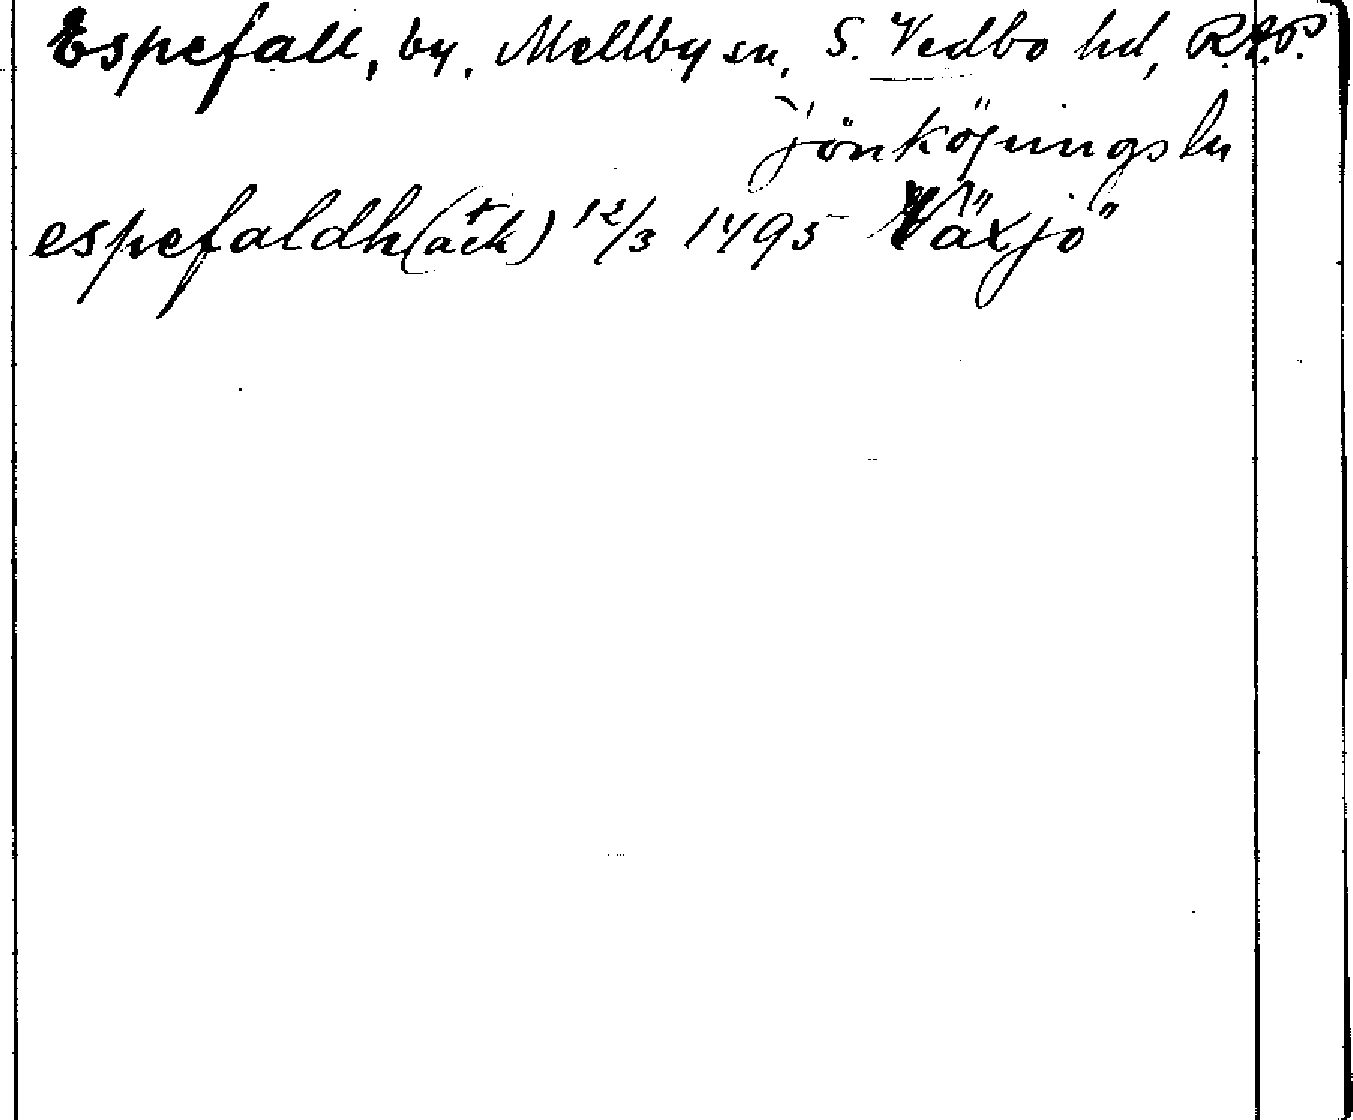 Espefall, by, Mellby sn, S. Vedbo hd, R.A.P.
Jönköpings ln
espefaldh (ack) 12/3 1495 Växjö